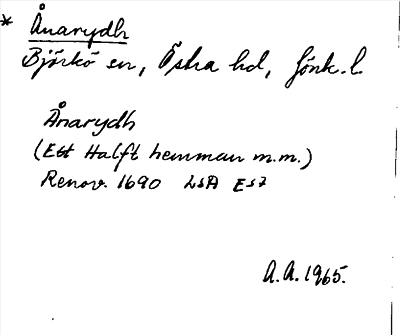 * Ånarydh
Björkö sn, Östra hd, Jönk. l.
Ånarydh
(Ett Halft hemman m.m.)
Renov. 1690 LSA E57
A.A. 1965.